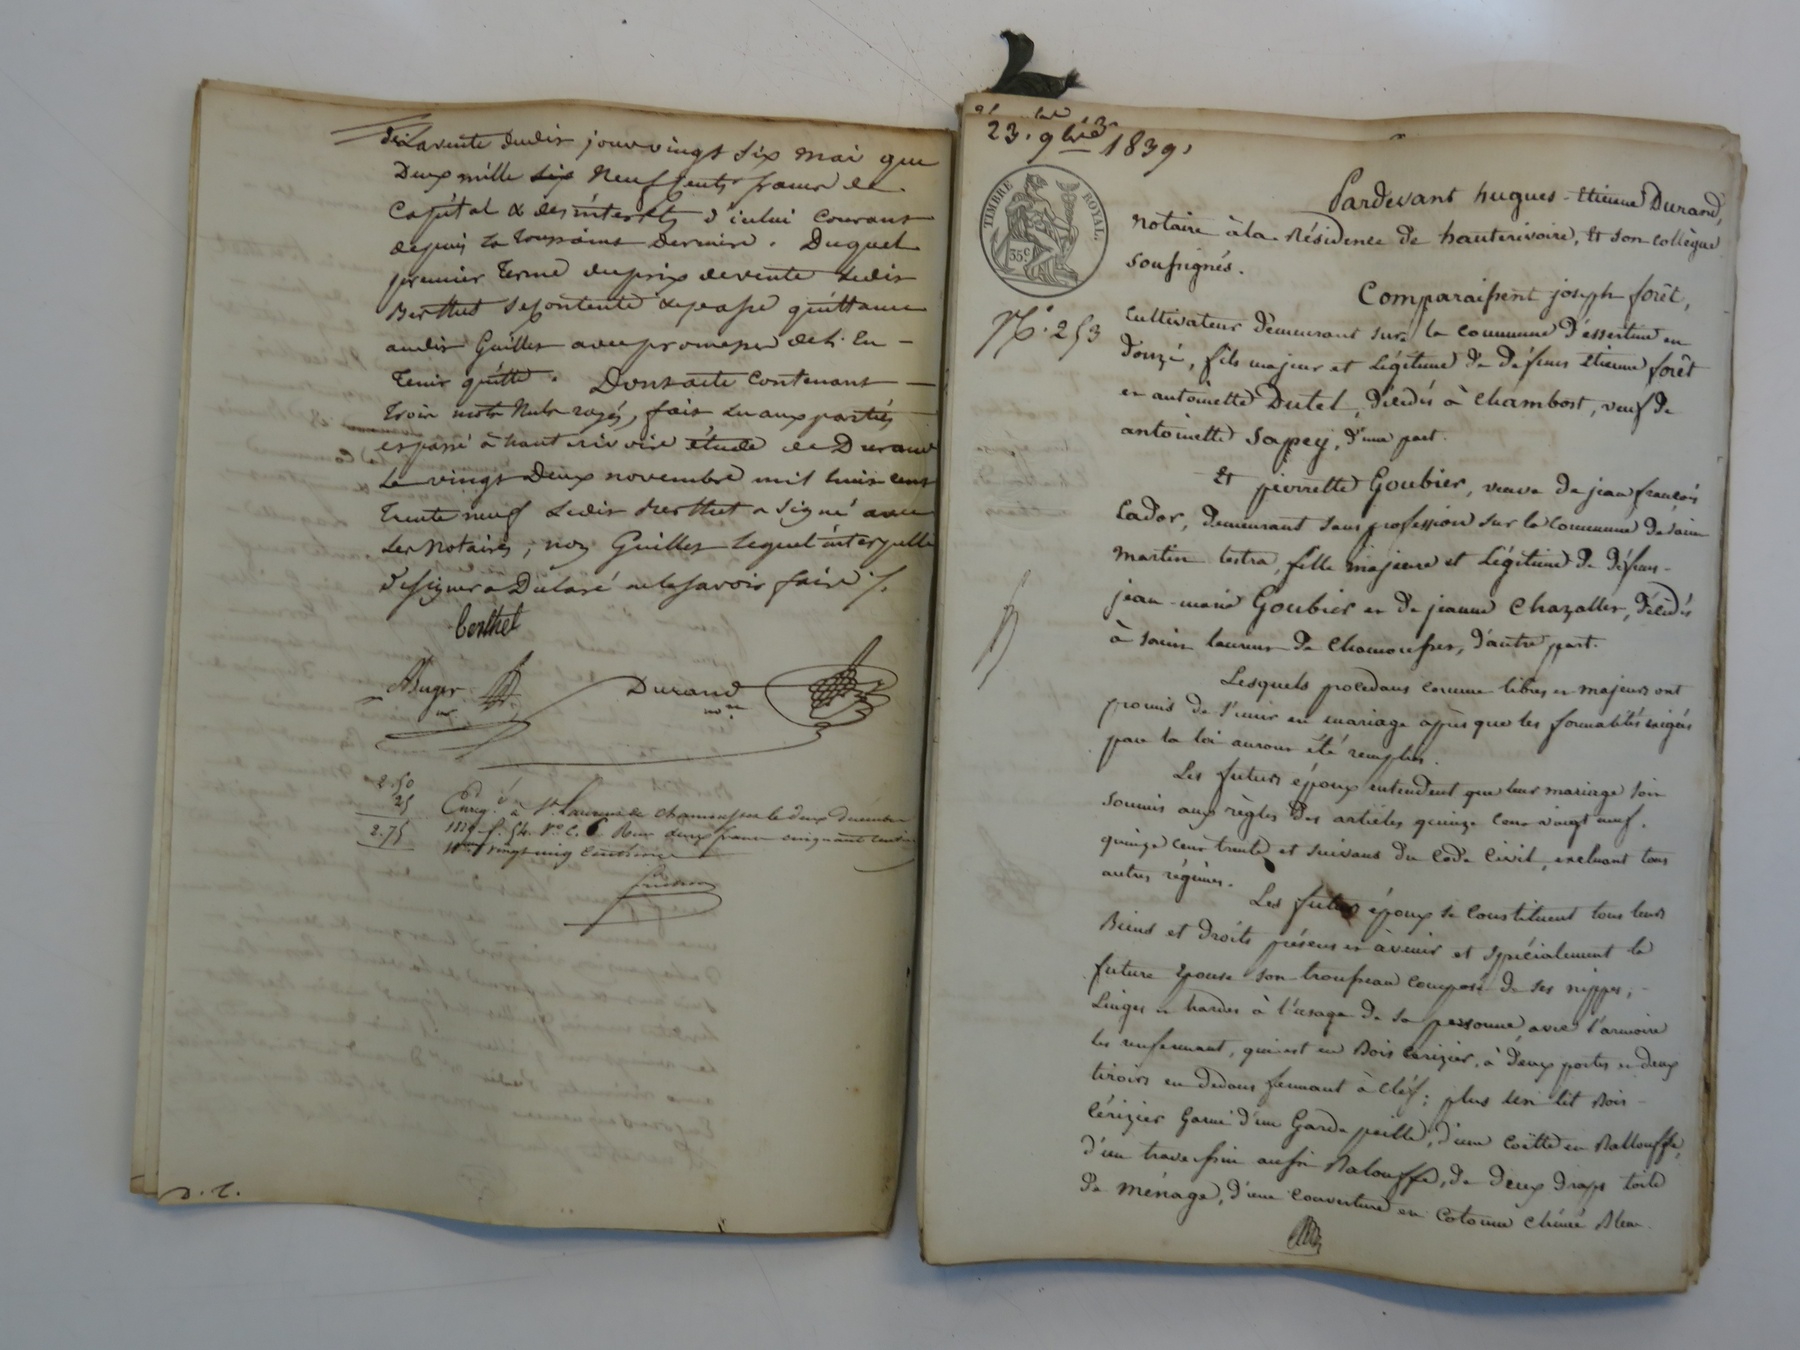 de la vente dudit jour vingt six mai que
Deux mille six Neuf Cents francs de
Capital & des intérêts d'icelui courant
depuis la toussaint Derniere. Duquel
premier terme du prix de vente Ledit
Berthet se Contente & passe quittance
audit Guillet avec promesse de l'en
tenir quitte. Dont acte Contenant
trois mots Nuls rayés, fait Lu aux parties
et passé à hauterivoire étude de Durand
Le vingt Deux novembre mil huit cent
trente neuf Ledit Berthet a signé avec
Les Notaires, non Guillet lequel interpellé
de signer a Déclaré ne le savoir faire /.
Berthet
Durand
nre
2.50
25
2.75
Enreg. à St. Laurent de chamousset le deux décembre
1839 f. 54 Vo. C. 6 Reçu deux francs cinquante centimes
vingt cinq centimes
D. C.
23. 9bre 1839,
TIMBRE ROYAL.
35c
No. 253
Pardevant hugues-Etienne Durand,
Notaire à la Résidence de hauterivoire, Et son collègue
soussignés.
Comparaissent joseph forêt,
Cultivateur demeurant sur la commune d'essertine en
Donzé, fils majeur et Légitime de Défunts Etienne forêt
et antoinette Dutel, décédés à Chambost, veuf de
antoinette Sapey, d'une part.
Et pierrette Goubier, veuve de jean françois
Cador, demeurant sans profession sur la Commune de saint
Martin lestra, fille majeure et Légitime de défunts
jean-marie Goubier et de jeanne Chazallet, décédés
à saint laurent de Chamousset, d'autre part.
Lesquels procédant comme libres et majeurs ont
promis de s'unir en mariage après que les formalités exigées
par la loi auront été remplies.
Les futurs époux entendent que leur mariage soit
soumis aux règles des articles quinze cent vingt neuf.
quinze cent trente et suivans du Code Civil, excluant tous
autres régimes.
Les futurs époux se constituent tous leurs
Biens et droits présens et à venir et spécialement la
future Epouse son trousseau composé de ses nippes,
Linges et hardes à l'usage de sa personne, avec l'armoire
les renfermant, qui est en Bois Cérizier, à deux portes et deux
tiroirs en dedans fermant à Cléf; plus un lit Bois
Cérizier Garni d'un Garde paille, d'une Coëtte en Ballouffe,
d'un traversin aussi Balouffe, de deux draps toile
de ménage, d'une couverture en Cotonne Chiné Bleu.